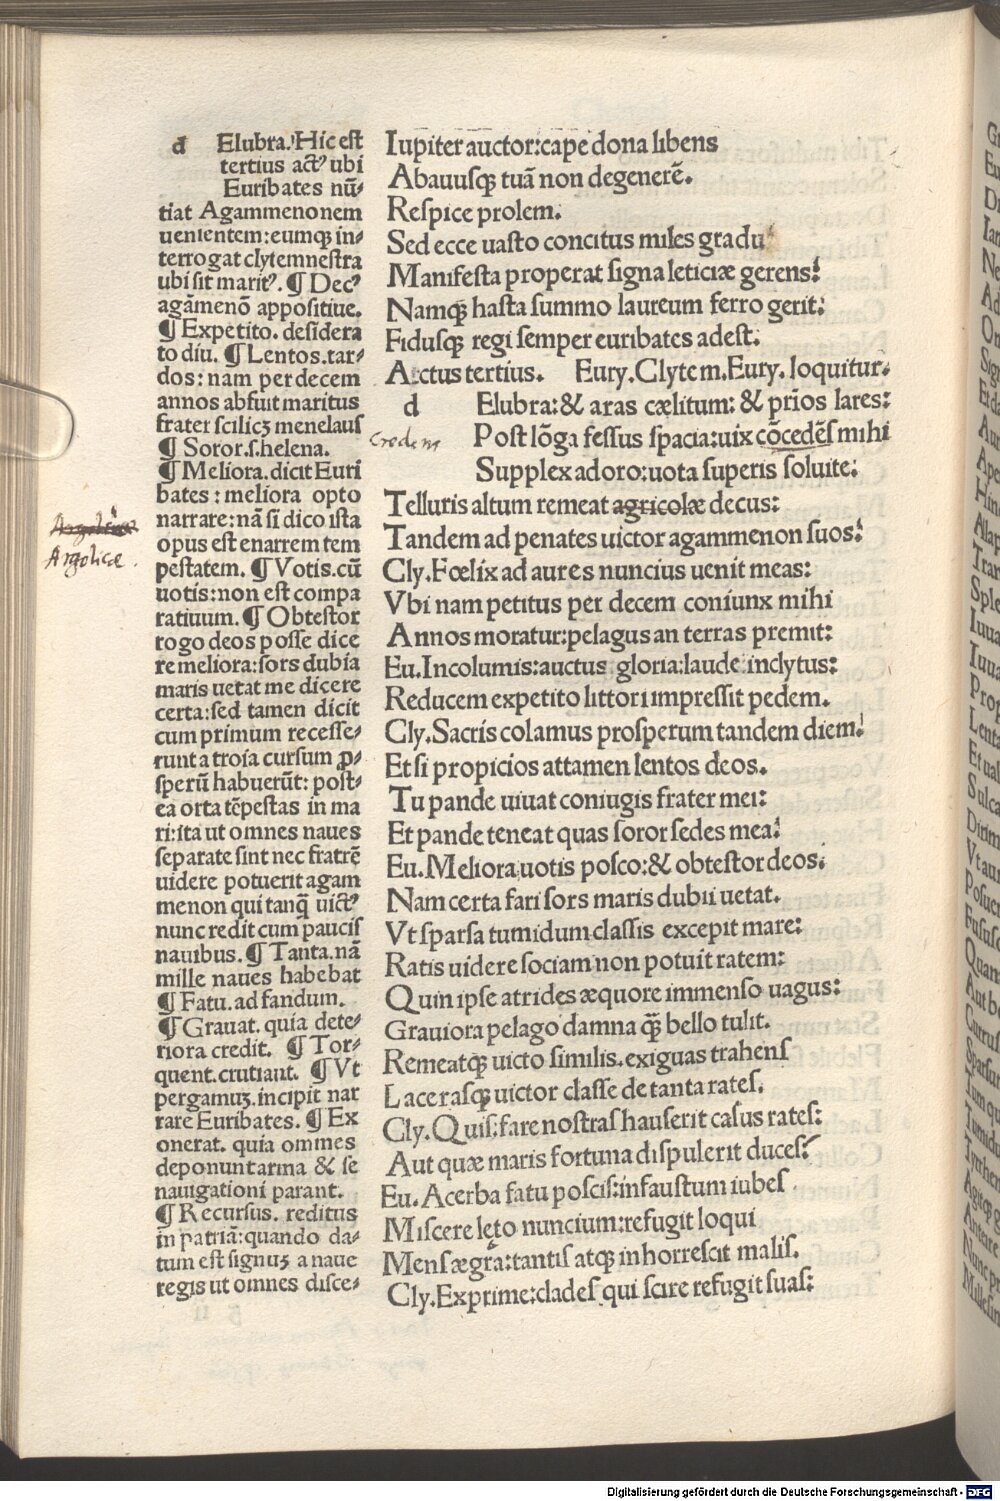 d Elubra.' Hic est
tertius actꝰ ubi
Euribates nū-
tiat Agammenonem
uenientem: eumqꝫ in-
terrogat clytemnestra
ubi sit maritꝰ. ¶ Decꝰ
agāmenō appositiue.
¶ Expetito. desidera
to diu. ¶ Lentos. tar-
dos: nam per decem
annos abfuit maritus
frater scilicꝫ menelaus
¶ Soror. s. helena.
¶ Meliora. dicit Euri
bates: meliora opto
narrare: nā si dico ista
opus est enarrem tem
pestatem. ¶ Votis. cū
uotis: non est compa
ratiuum. ¶ Obtestor
rogo deos posse dice
re meliora: sors dubia
maris uetat me dicere
certa: sed tamen dicit
cum primum recesse-
runt a troia cursum ꝓ-
sperū habuerūt: post-
ea orta tēpestas in ma
ri: ita ut omnes naues
separate sint nec fratrē
uidere potuerit agam
menon qui tanq̄ uictꝰ
nunc redit cum paucis
nauibus. ¶ Tanta. nā
mille naues habebat
¶ Fatu. ad fandum.
¶ Grauat. quia dete-
riora credit. ¶ Tor-
quent. crutiant. ¶ Vt
pergamuꝫ. incipit nar
rare Euribates. ¶ Ex
onerat. quia ommes
deponunt arma & se
nauigationi parant.
¶ Recursus. reditus
in patriā: quando da-
tum est signuꝫ a naue
regis ut omnes disce-
Argolicæ
Argolicæ.
Iupiter auctor: cape dona libens
Abauusqꝫ tuā non degenerē.
Respice prolem.
Sed ecce uasto concitus miles gradu
Manifesta properat signa leticiæ gerens:
Namqꝫ hasta summo laureum ferro gerit:
Fidusqꝫ regi semper euribates adest.
Actus tertius. Eury. Clytem. Eury. loquitur.
d Elubra: & aras cælitum: & prīos lares:
Post lōga fessus spacia: uix cōcedēs mihi
credens
Supplex adoro: uota superis soluite:
Telluris altum remeat agricolæ decus:
Tandem ad penates uictor agammenon suos:
Cly. Fœlix ad aures nuncius uenit meas:
Vbi nam petitus per decem coniunx mihi
Annos moratur: pelagus an terras premit:
Eu. Incolumis: auctus gloria: laude inclytus:
Reducem expetito littori impressit pedem.
Cly. Sacris colamus prosperum tandem diem:
Et si propicios attamen lentos deos.
Tu pande uiuat coniugis frater mei:
Et pande teneat quas soror sedes mea:
Eu. Meliora uotis posco: & obtestor deos:
Nam certa fari sors maris dubii uetat.
Vt sparsa tumidum classis excepit mare:
Ratis uidere sociam non potuit ratem:
Quin ipse atrides æquore immenso uagus:
Grauiora pelago damna q̄ꝫ bello tulit.
Remeatqꝫ uicto similis. exiguas trahens
Lacerasqꝫ uictor classe de tanta rates.
Cly. Quis: fare nostras hauserit casus rates:
Aut quæ maris fortuna dispulerit duces:
Eu. Acerba fatu poscis: infaustum iubes
Miscere lęto nuncium: refugit loqui
Mens ægra: tantis atqꝫ inhorrescit malis.
Cly. Exprime: clades qui scire refugit suas:
Digitalisierung gefördert durch die Deutsche Forschungsgemeinschaft - DFG